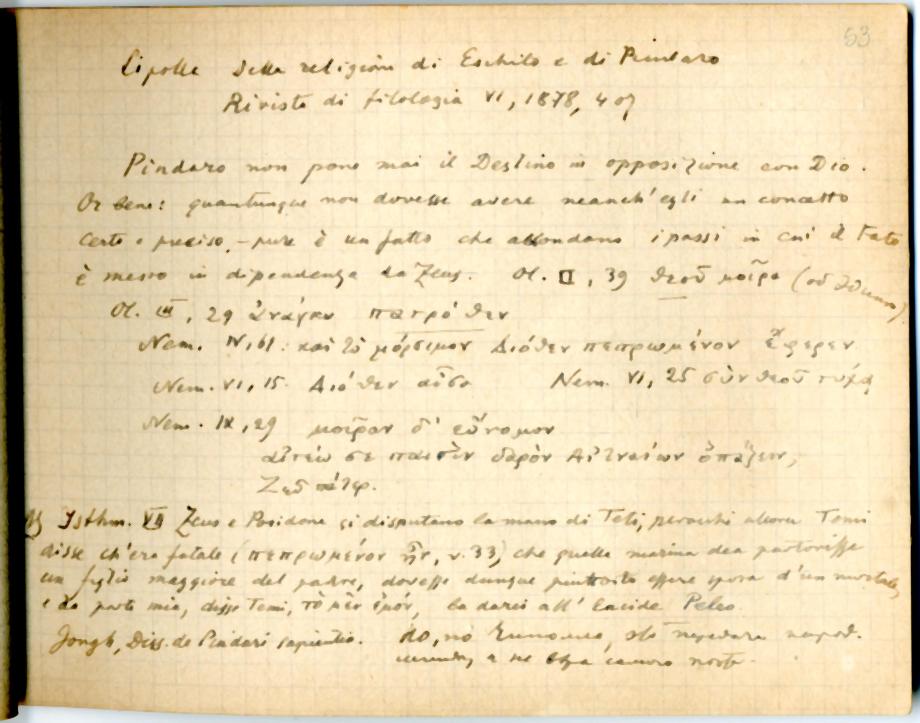 53
Cipolla Della religione di Eschilo e di Pindaro
Rivista di filologia VI, 1878, 407
Pindaro non pone mai il Destino in opposizione con Dio.
Or bene: quantunque non dovesse avere neanch'egli un concetto
certo e preciso, pure è un fatto che abbondano i passi in cui il Fato
è messo in dipendenza da Zeus. Ol. II, 39 θεοῦ μοῖρα
Ol. III, 29 ἀνάγκα πατρόθεν
Nem. IV, 61: καὶ τὸ μόρσιμον Διόθεν πεπρωμένον ἔφερεν
Nem. VI, 15. Διόθεν αἶσα Nem. VI, 25 σὺν θεοῦ τύχᾳ
Nem. IX, 29 μοῖραν δ' εὔνομον
αἰτέω σε παισὶν δαρὸν Αἰτναίων ὀπάζειν,
Ζεῦ πάτερ.
Isthm. VII Zeus e Posidone si disputano la mano di Teti, perocchè allora Temi
disse ch'era fatale (πεπρωμένον ἦν, v. 33) che quella marina dea partorisse
un figlio maggiore del padre, dovesse dunque piuttosto essere sposa d'un mortale,
e da parte mia, disse Temi, τὸ μὲν ἐμόν, la darei all' Eacide Peleo.
Jongh, Diss. de Pindari sapientia.